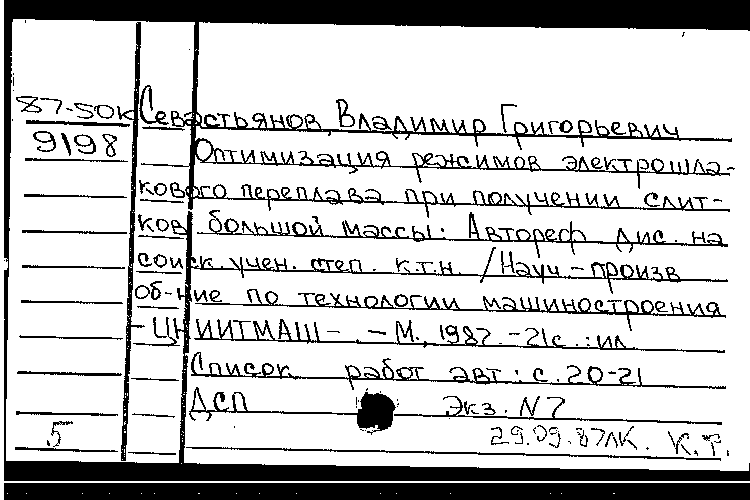 87-50к Севастьянов, Владимир Григорьевич
9198 Оптимизация режимов электрошла-
кового переплава при получении слит-
ков большой массы: Автореф дис. на
соиск. учен. степ. к.т.н. /Науч-произв
об-ние по технологии машиностроения
- ЦНИИТМАШ - . - М., 1987. - 21с. : ил
Список работ авт.: с. 20-21
ДСП Экз. N7
5 29.09.87ЛК. К.Т.